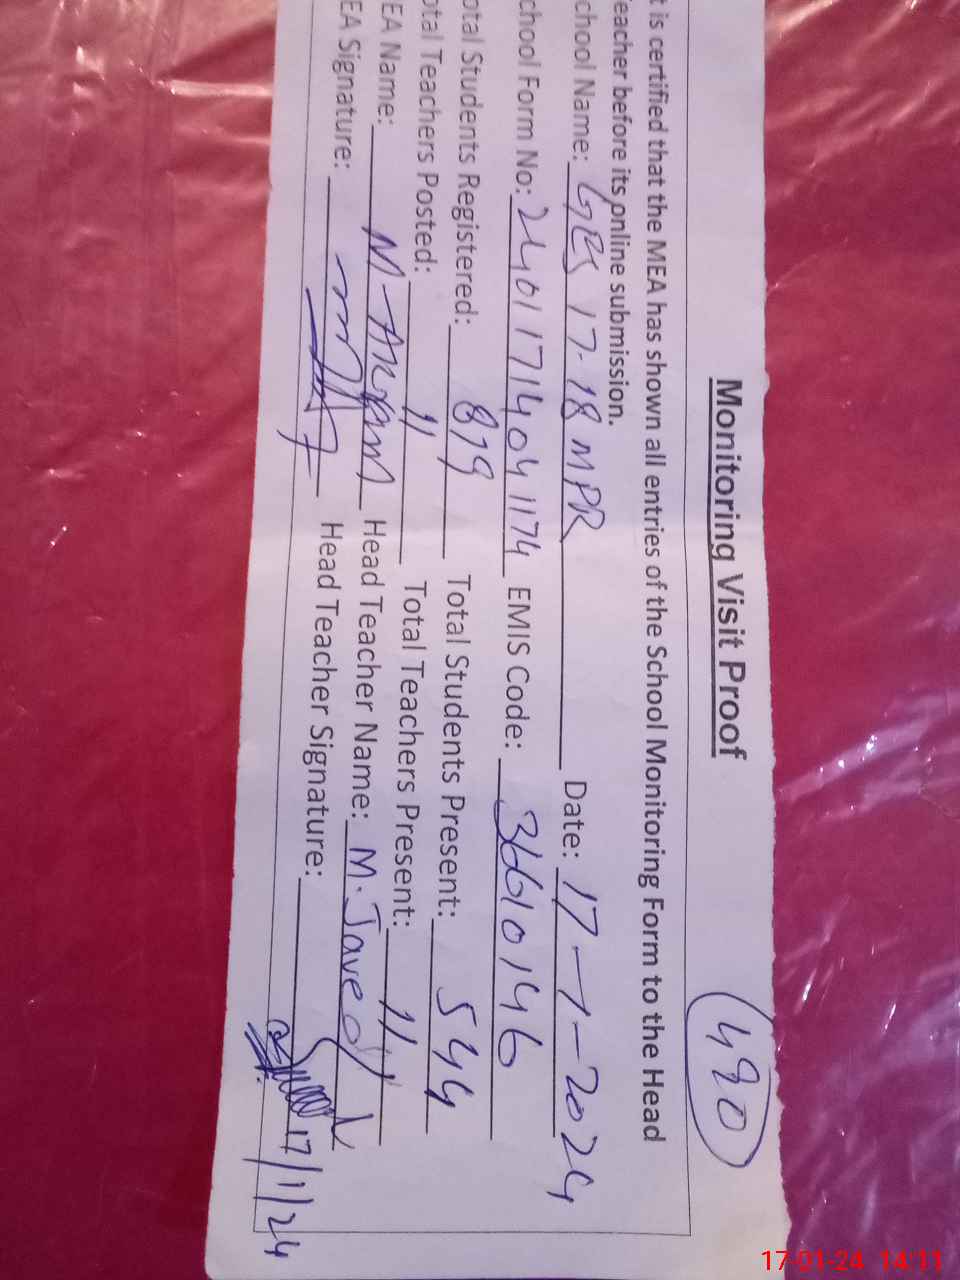 490
Monitoring Visit Proof
t is certified that the MEA has shown all entries of the School Monitoring Form to the Head
eacher before its online submission.
chool Name: GES 17-18 MPR Date: 17-1-2024
chool Form No: 2401171404041174 EMIS Code: 36610146
otal Students Registered: 819 Total Students Present: 544
otal Teachers Posted: 11 Total Teachers Present: 11
EA Name: M-Akram Head Teacher Name: M. Javed
EA Signature: Head Teacher Signature:
17/1/24
17-01-24 14:11